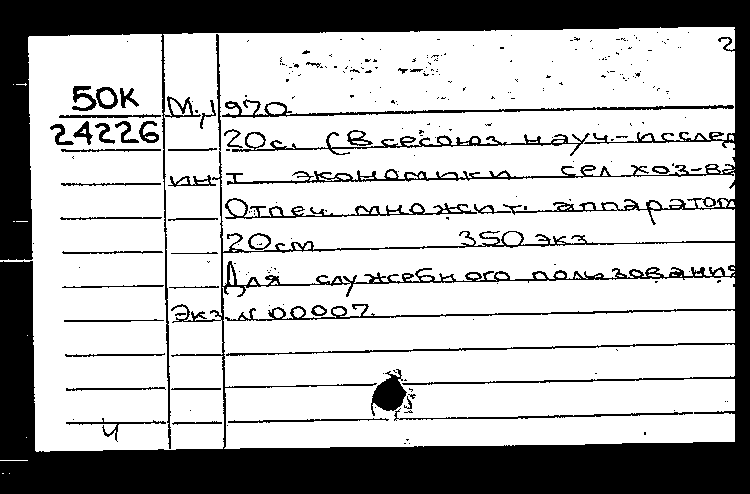 2
50К М., 1970.
24226 20с. (Всесоюз. науч.-исслед
ин-т экономики сел. хоз-ва
Отпеч. множит. аппаратом
20см 350 экз
Для служебного пользования
Экз. № 00007.
4